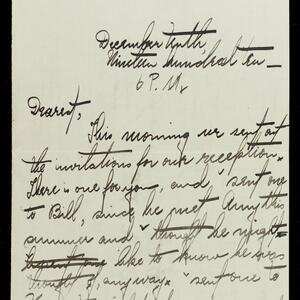 December tenth,
Nineteen hundred ten —
6 P.M.
Dearest,
This morning we sent out
the invitations for our reception.
There is one for you, and I sent one
to Bill, since he met Amy this
summer and I thought he might
like to know he was
thought of, anyway. I sent one to